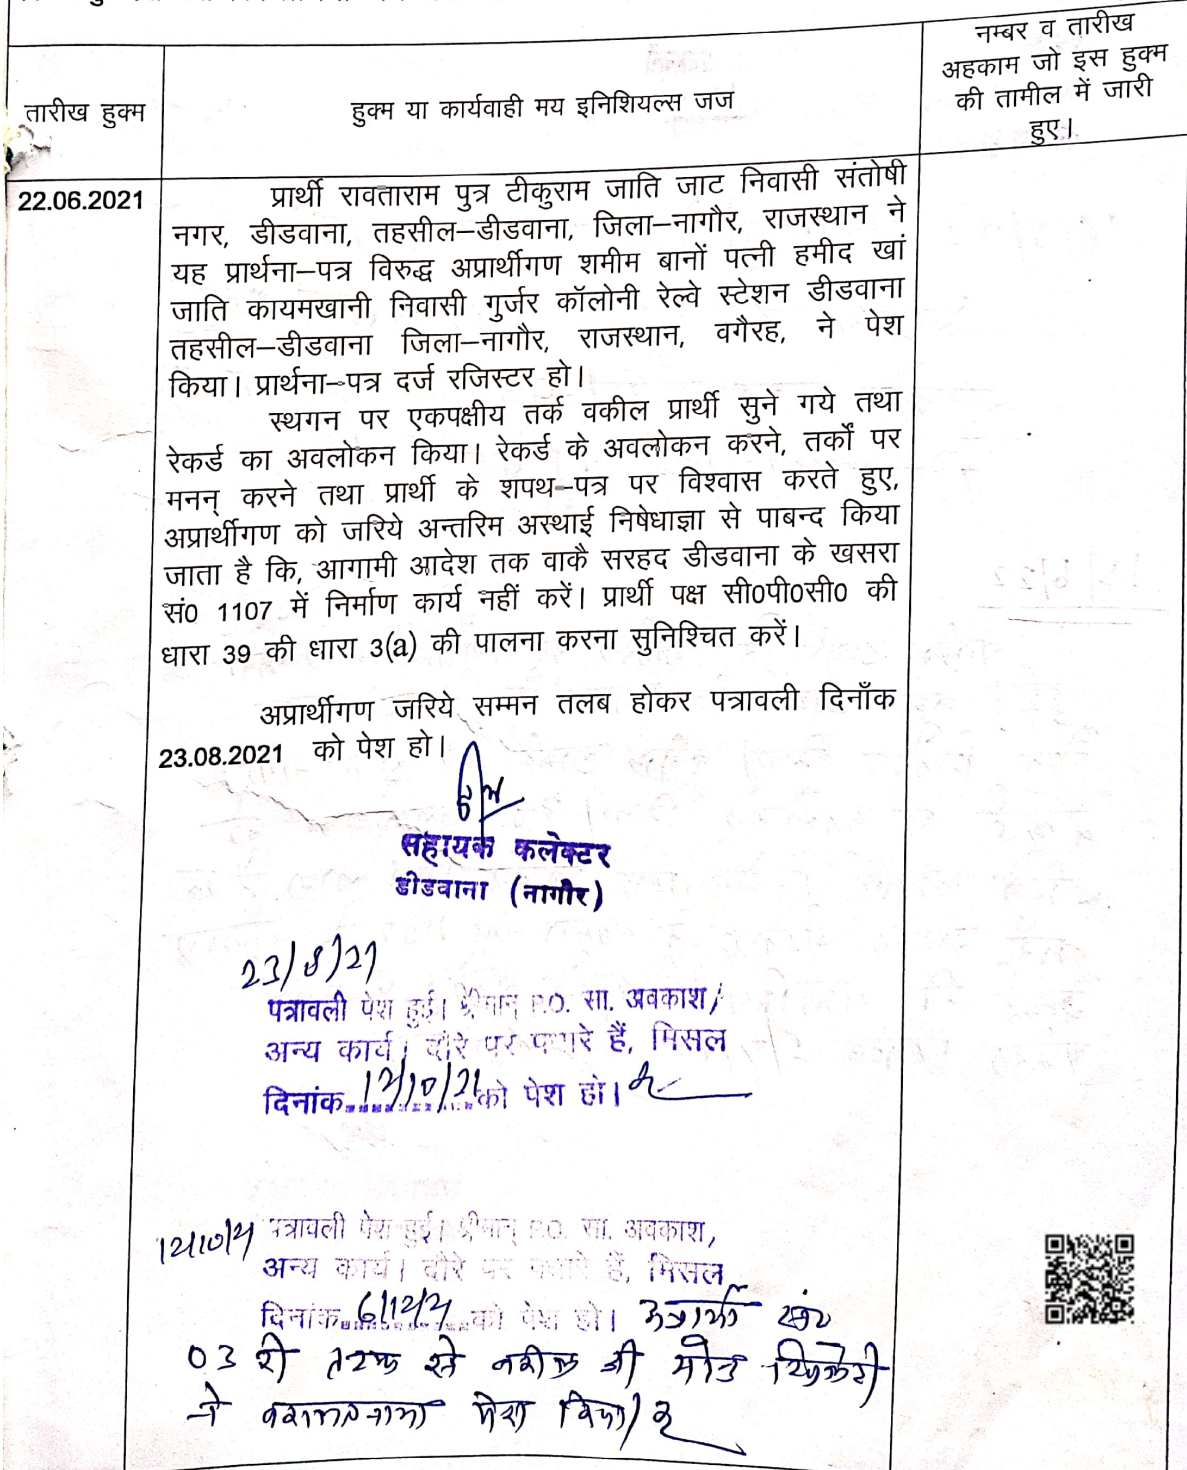 तारीख हुक्म
हुक्म या कार्यवाही मय इनिशियल्स जज
नम्बर व तारीख
अहकाम जो इस हुक्म
की तामील में जारी
हुए।
22.06.2021
प्रार्थी रावताराम पुत्र टीकुराम जाति जाट निवासी संतोषी
नगर, डीडवाना, तहसील–डीडवाना, जिला–नागौर, राजस्थान ने
यह प्रार्थना–पत्र विरुद्ध अप्रार्थीगण शमीम बानों पत्नी हमीद खां
जाति कायमखानी निवासी गुर्जर कॉलोनी रेल्वे स्टेशन डीडवाना
तहसील–डीडवाना जिला–नागौर, राजस्थान, वगैरह, ने पेश
किया। प्रार्थना–पत्र दर्ज रजिस्टर हो।
स्थगन पर एकपक्षीय तर्क वकील प्रार्थी सुने गये तथा
रेकर्ड का अवलोकन किया। रेकर्ड के अवलोकन करने, तर्कों पर
मनन् करने तथा प्रार्थी के शपथ–पत्र पर विश्वास करते हुए,
अप्रार्थीगण को जरिये अन्तरिम अस्थाई निषेधाज्ञा से पाबन्द किया
जाता है कि, आगामी आदेश तक वाकै सरहद डीडवाना के खसरा
सं0 1107 में निर्माण कार्य नहीं करें। प्रार्थी पक्ष सी0पी0सी0 की
धारा 39 की धारा 3(a) की पालना करना सुनिश्चित करें।
अप्रार्थीगण जरिये सम्मन तलब होकर पत्रावली दिनाँक
23.08.2021 को पेश हो।
सहायक कलेक्टर
डीडवाना (नागौर)
23/8/21
पत्रावली पेश हुई। श्रीमान् P.O. सा. अवकाश/
अन्य कार्य। दौरे पर पधारे हैं, मिसल
दिनांक 12/10/21 को पेश हो।
12/10/21 पत्रावली पेश हुई। श्रीमान् P.O. सा. अवकाश,
अन्य कार्य। दौरे पर पधारे हैं, मिसल
दिनांक 6/12/21 को पेश हो।
03 की तरफ से वकील श्री
ने वकालतनामा पेश किया।